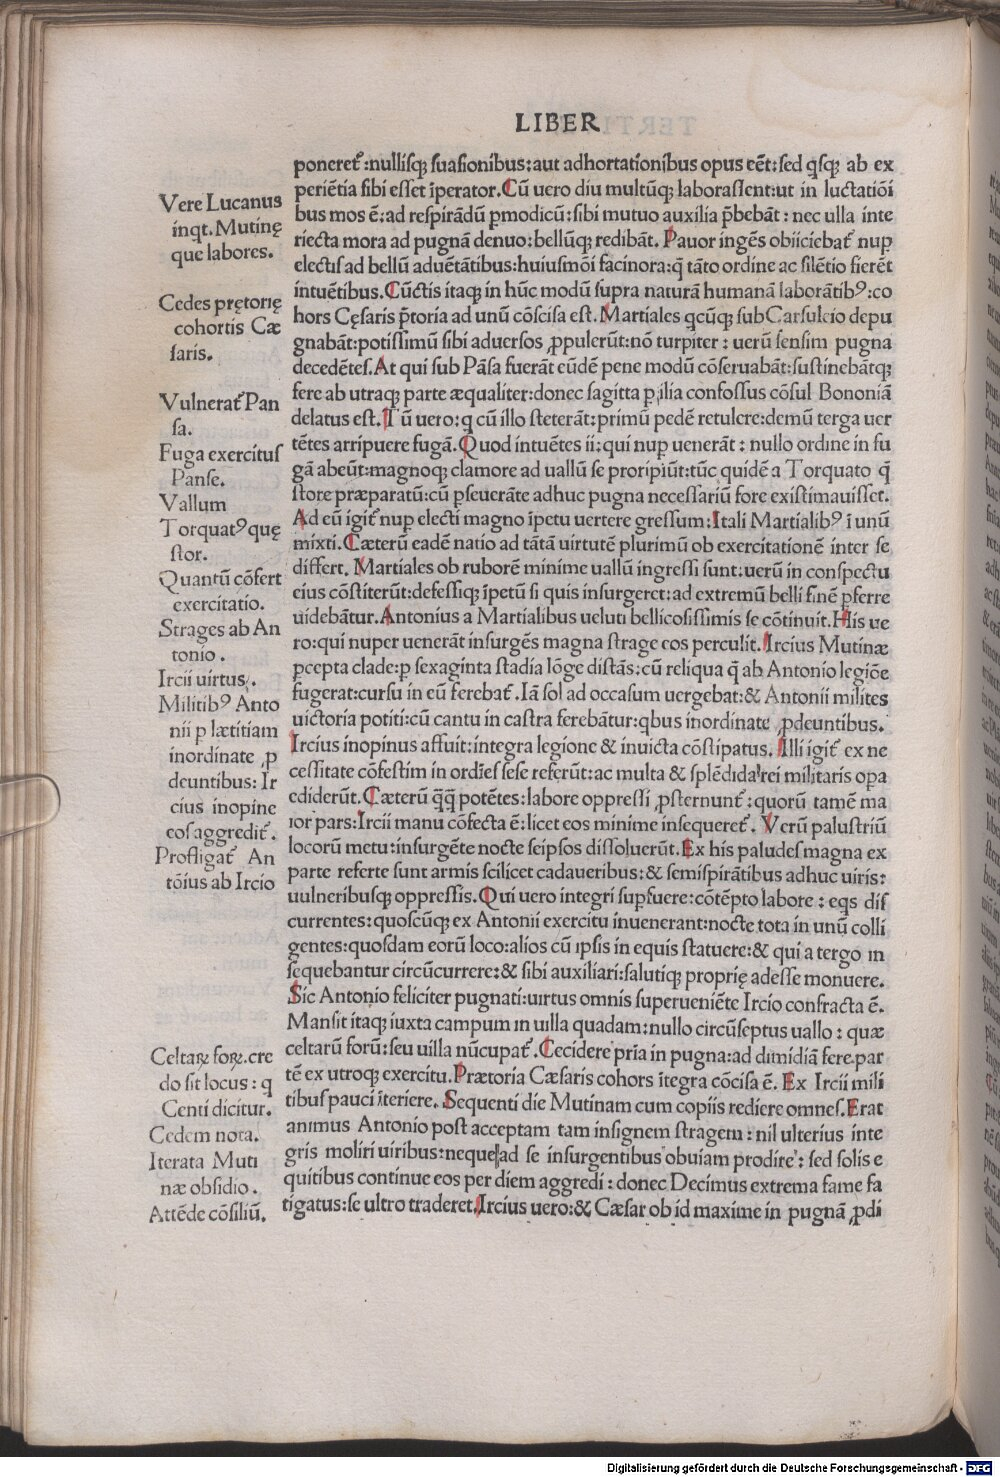 LIBER
poneret᷒:nulliſq; ſuaſionibus:aut adhortationibus opus eēt:ſed qſq; ab ex
periētia ſibi eſſet īperator.Cū uero diu multūq; laboraſſent:ut in luctatiōi
bus mos ē:ad reſpirādū pmodicū:ſibi mutuo auxilia p̄bebāt:nec ulla inte
riecta mora ad pugnā denuo:bellūq; redibāt.Pauor ingēs obiiciebat᷒ nup
electiſ ad bellū aduētātibus:huiuſmōi facinora:q̄ tāto ordine ac ſilētio fierēt
intuētibus.Cūctis itaq; in hūc modū ſupra naturā humanā laborātibꝰ:co
hors Cęſaris p̄toria ad unū cōſciſa eſt.Martiales qcūq; ſub Carſuleio depu
gnabāt:potiſſimū ſibi aduerſos ꝓpulerūt:nō turpiter:uerū ſenſim pugna
decedēteſ.At qui ſub Pāſa fuerāt eūdē pene modū cōſeruabāt:ſuſtinebātq;
fere ab utraq; parte æqualiter:donec ſagitta p ilia confoſſus cōſul Bononiā
delatus eſt.Tū uero:q cū illo ſteterāt:primū pedē retulere:demū terga uer
tētes arripuere fugā.Quod intuētes ii:qui nup uenerāt:nullo ordine in fu
gā abeūt:magnoq; clamore ad uallū ſe proripiūt:tūc quidē a Torquato q̄
ſtore præparatū:cū pſeuerāte adhuc pugna neceſſariū fore exiſtimauiſſet.
Ad eū igit᷒ nup electi magno īpetu uertere greſſum:Itali Martialibꝰ ī unū
mixti.Cæterū eadē natio ad tātā uirtutē plurimū ob exercitationē inter ſe
differt.Martiales ob ruborē minime uallū ingreſſi ſunt:uerū in conſpectu
eius cōſtiterūt:defeſſiq; īpetū ſi quis inſurgeret:ad extremū belli finē pferre
uidebātur.Antonius a Martialibus ueluti bellicoſiſſimis ſe cōtinuit.His ue
ro:qui nuper uenerāt inſurgēs magna ſtrage eos perculit.Ircius Mutinæ
pcepta clade:p ſexaginta ſtadia lōge diſtās:cū reliqua q̄ ab Antonio legiōe
fugerat:curſu in eū ferebat᷒.Iā ſol ad occaſum uergebat:& Antonii milites
uictoria potiti:cū cantu in caſtra ferebātur:qbus inordinate ꝓdeuntibus.
Ircius inopinus affuit:integra legione & inuicta cōſtipatus.Illi igit᷒ ex ne
ceſſitate cōfeſtim in ordīeſ ſeſe referūt:ac multa & ſplēdida rei militaris opa
ediderūt.Cæterū q̄q̄ potētes:labore oppreſſi ꝓſternunt᷒:quorū tamē ma
ior pars:Ircii manu cōfecta ē:licet eos minime inſequeret᷒.Verū paluſtriū
locorū metu:inſurgēte nocte ſeipſos diſſoluerūt.Ex his paludeſ magna ex
parte referte ſunt armis ſcilicet cadaueribus:& ſemiſpirātibus adhuc uiris:
uulneribuſq; oppreſſis.Qui uero integri ſupfuere:cōtēpto labore:eqs diſ
currentes:quoſcūq; ex Antonii exercitu inuenerant:nocte tota in unū colli
gentes:quoſdam eorū loco:alios cū ipſis in equis ſtatuere:& qui a tergo in
ſequebantur circūcurrere:& ſibi auxiliari:ſalutiq; proprię adeſſe monuere.
Sic Antonio feliciter pugnati:uirtus omnis ſuperueniēte Ircio confracta ē.
Manſit itaq; iuxta campum in uilla quadam:nullo circūſeptus uallo:quæ
celtarū forū:ſeu uilla nūcupat᷒.Cecidere pria in pugna:ad dimidiā fere par
tē ex utroq; exercitu.Prætoria Cæſaris cohors ītegra cōciſa ē.Ex Ircii mili
tibuſ pauci īteriere.Sequenti die Mutinam cum copiis rediere omneſ.Erat
animus Antonio poſt acceptam tam inſignem ſtragem:nil ulterius inte
gris moliri uiribus:neque ad ſe inſurgentibus obuiam prodire:ſed ſolis e
quitibus continue eos per diem aggredi:donec Decimus extrema fame fa
tigatus:ſe ultro traderet.Ircius uero:& Cæſar ob id maxime in pugnā ꝓdi
Vere Lucanus
inqt.Mutinę
que labores.
Cedes prętorię
cohortis Cæ
ſaris.
Vulnerat᷒ Pan
ſa.
Fuga exercituſ
Panſe.
Vallum
Torquatꝰ quę
ſtor.
Quantū cōfert
exercitatio.
Strages ab An
tonio.
Ircii uirtus.
Militibꝰ Anto
nii p lætitiam
inordinate ꝓ
deuntibus:Ir
cius inopine
eoſ aggredit᷒.
Profligat᷒ An
tōius ab Ircio
Celtaꝝ foꝝ.cre
do ſit locus:q
Centi dicitur.
Cedem nota.
Iterata Muti
næ obſidio.
Attēde cōſiliū.
Digitalisierung gefördert durch die Deutsche Forschungsgemeinschaft - DFG